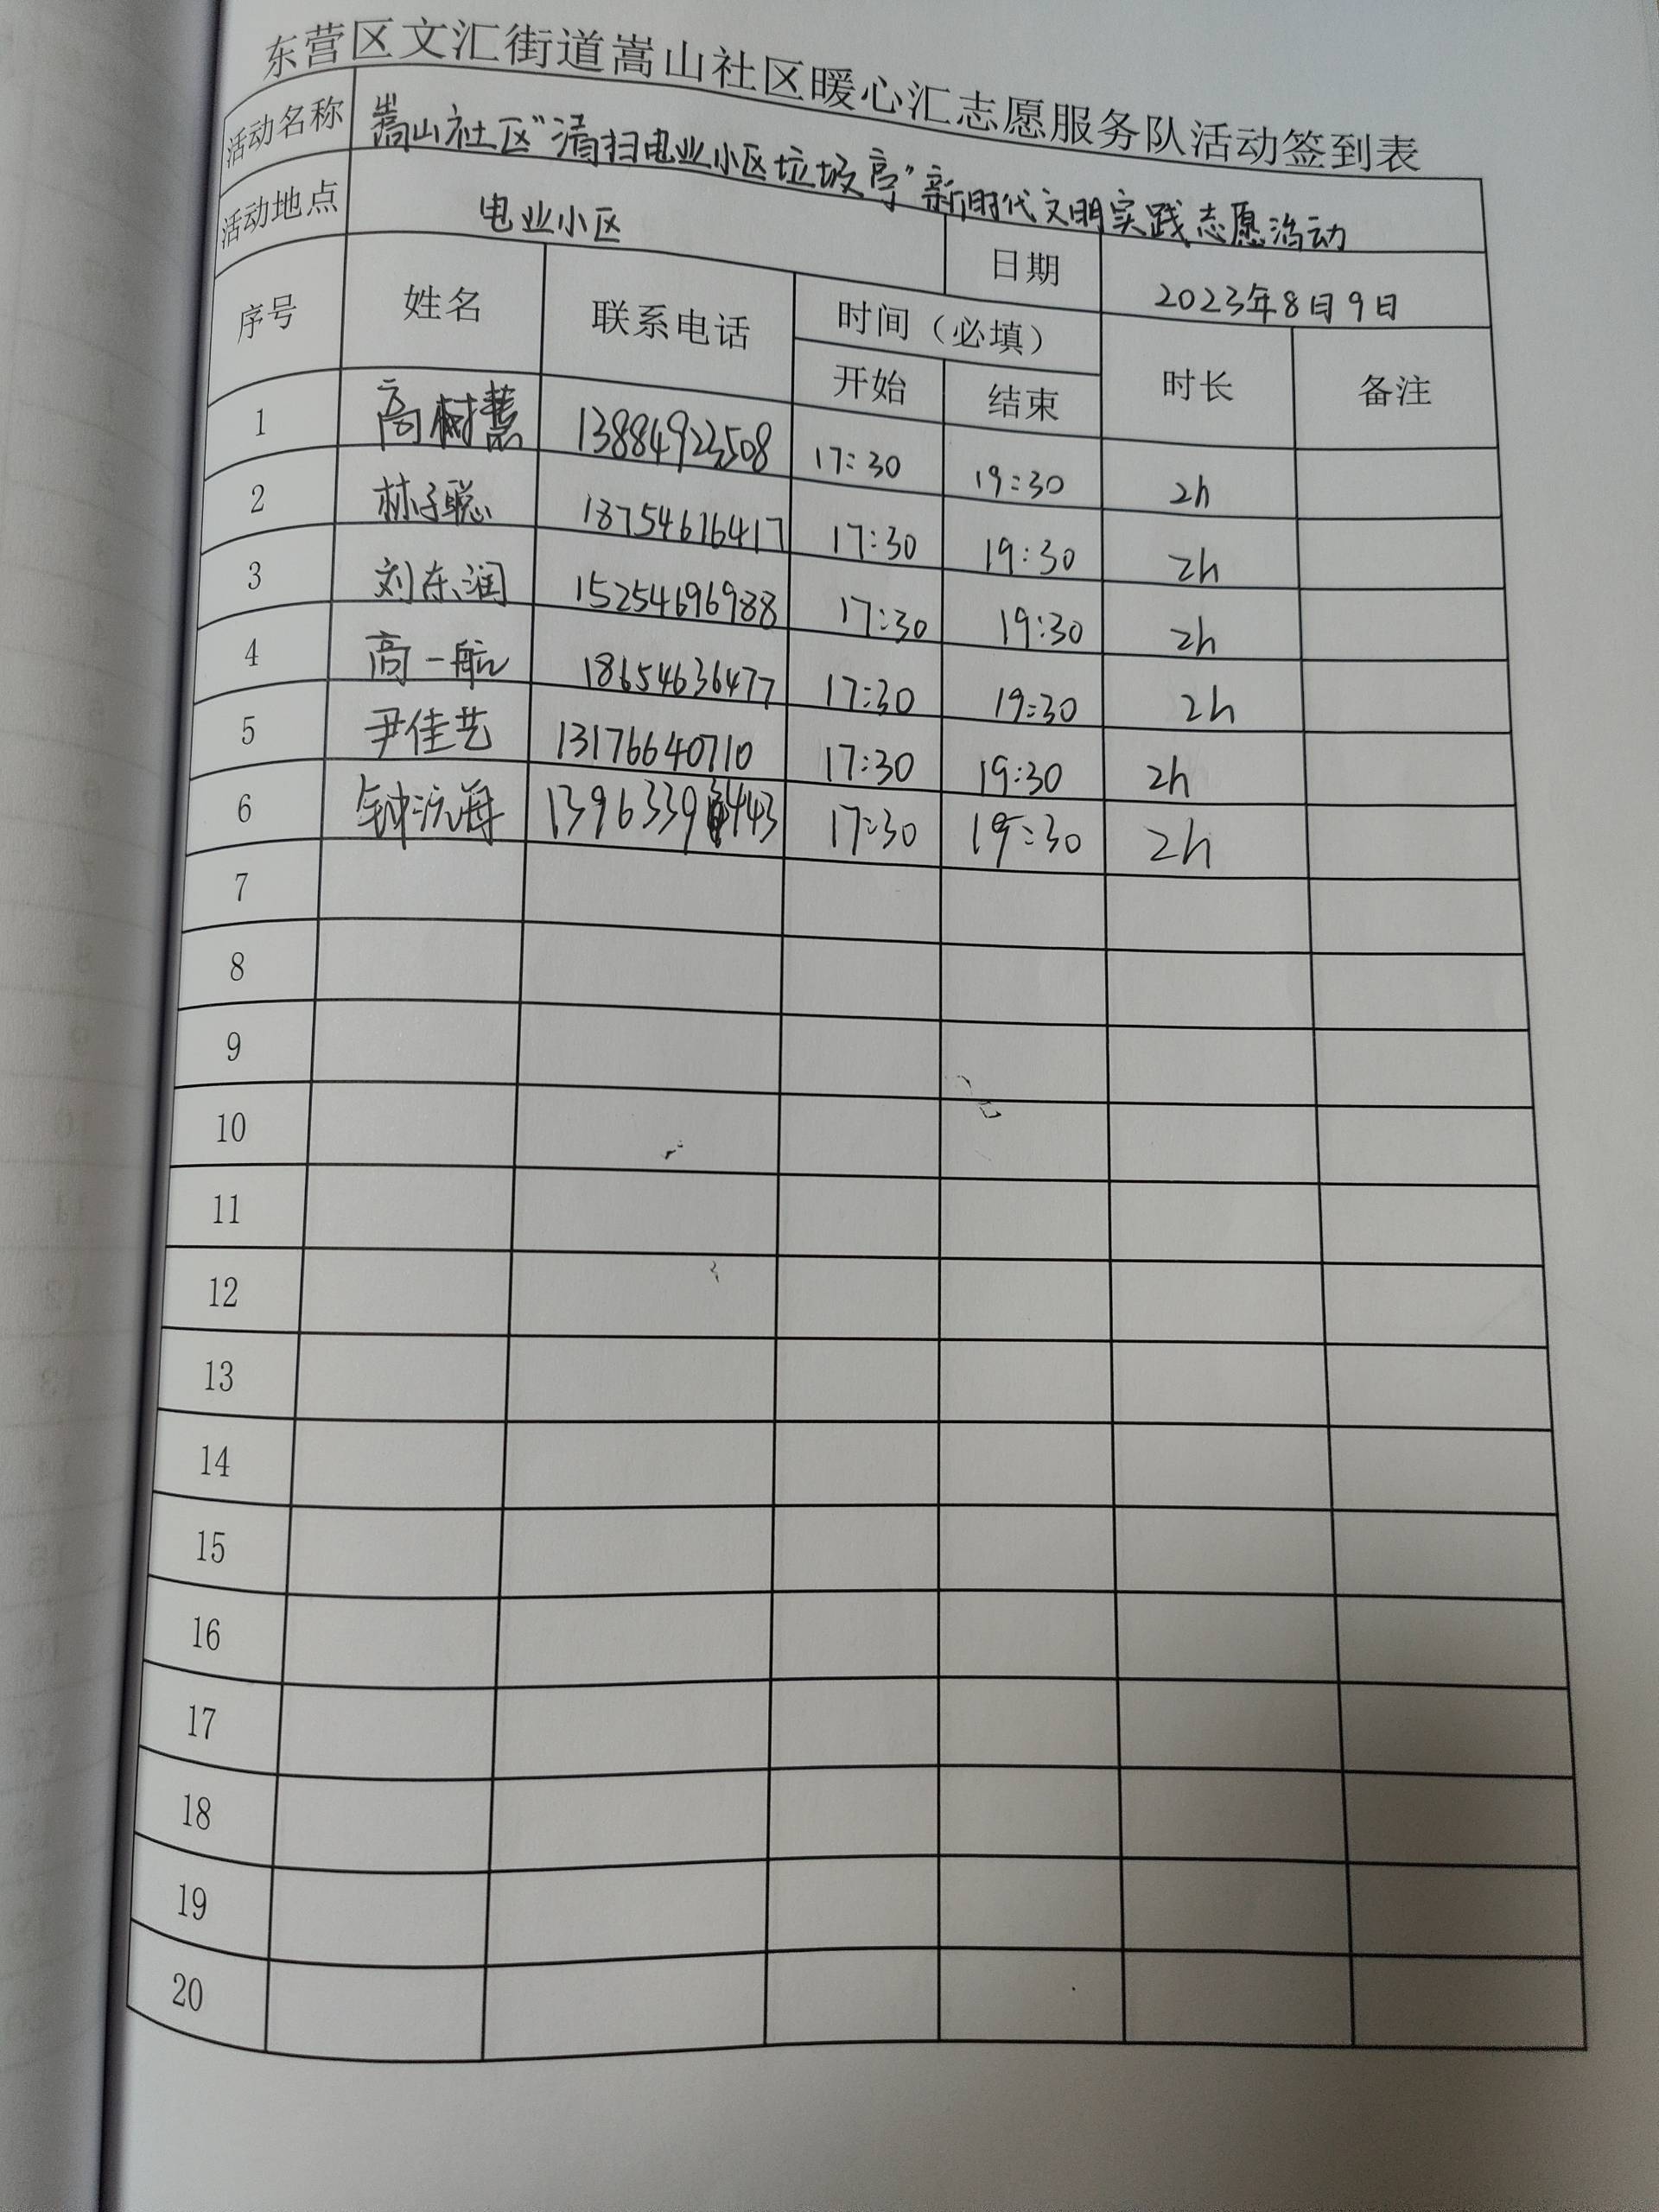 东营区文汇街道嵩山社区暖心汇志愿服务队活动签到表
活动名称 嵩山社区"清扫电业小区垃圾亭"新时代文明实践志愿活动
活动地点 电业小区 日期 2023年8月9日
序号 姓名 联系电话 时间（必填） 时长 备注
开始 结束
1 高树慧 13884923508 17:30 19:30 2h
2 林子聪 18754676417 17:30 19:30 2h
3 刘东润 15254696988 17:30 19:30 2h
4 高一航 18654636477 17:30 19:30 2h
5 尹佳艺 13176640710 17:30 19:30 2h
6 17:30 19:30 2h
7
8
9
10
11
12
13
14
15
16
17
18
19
20